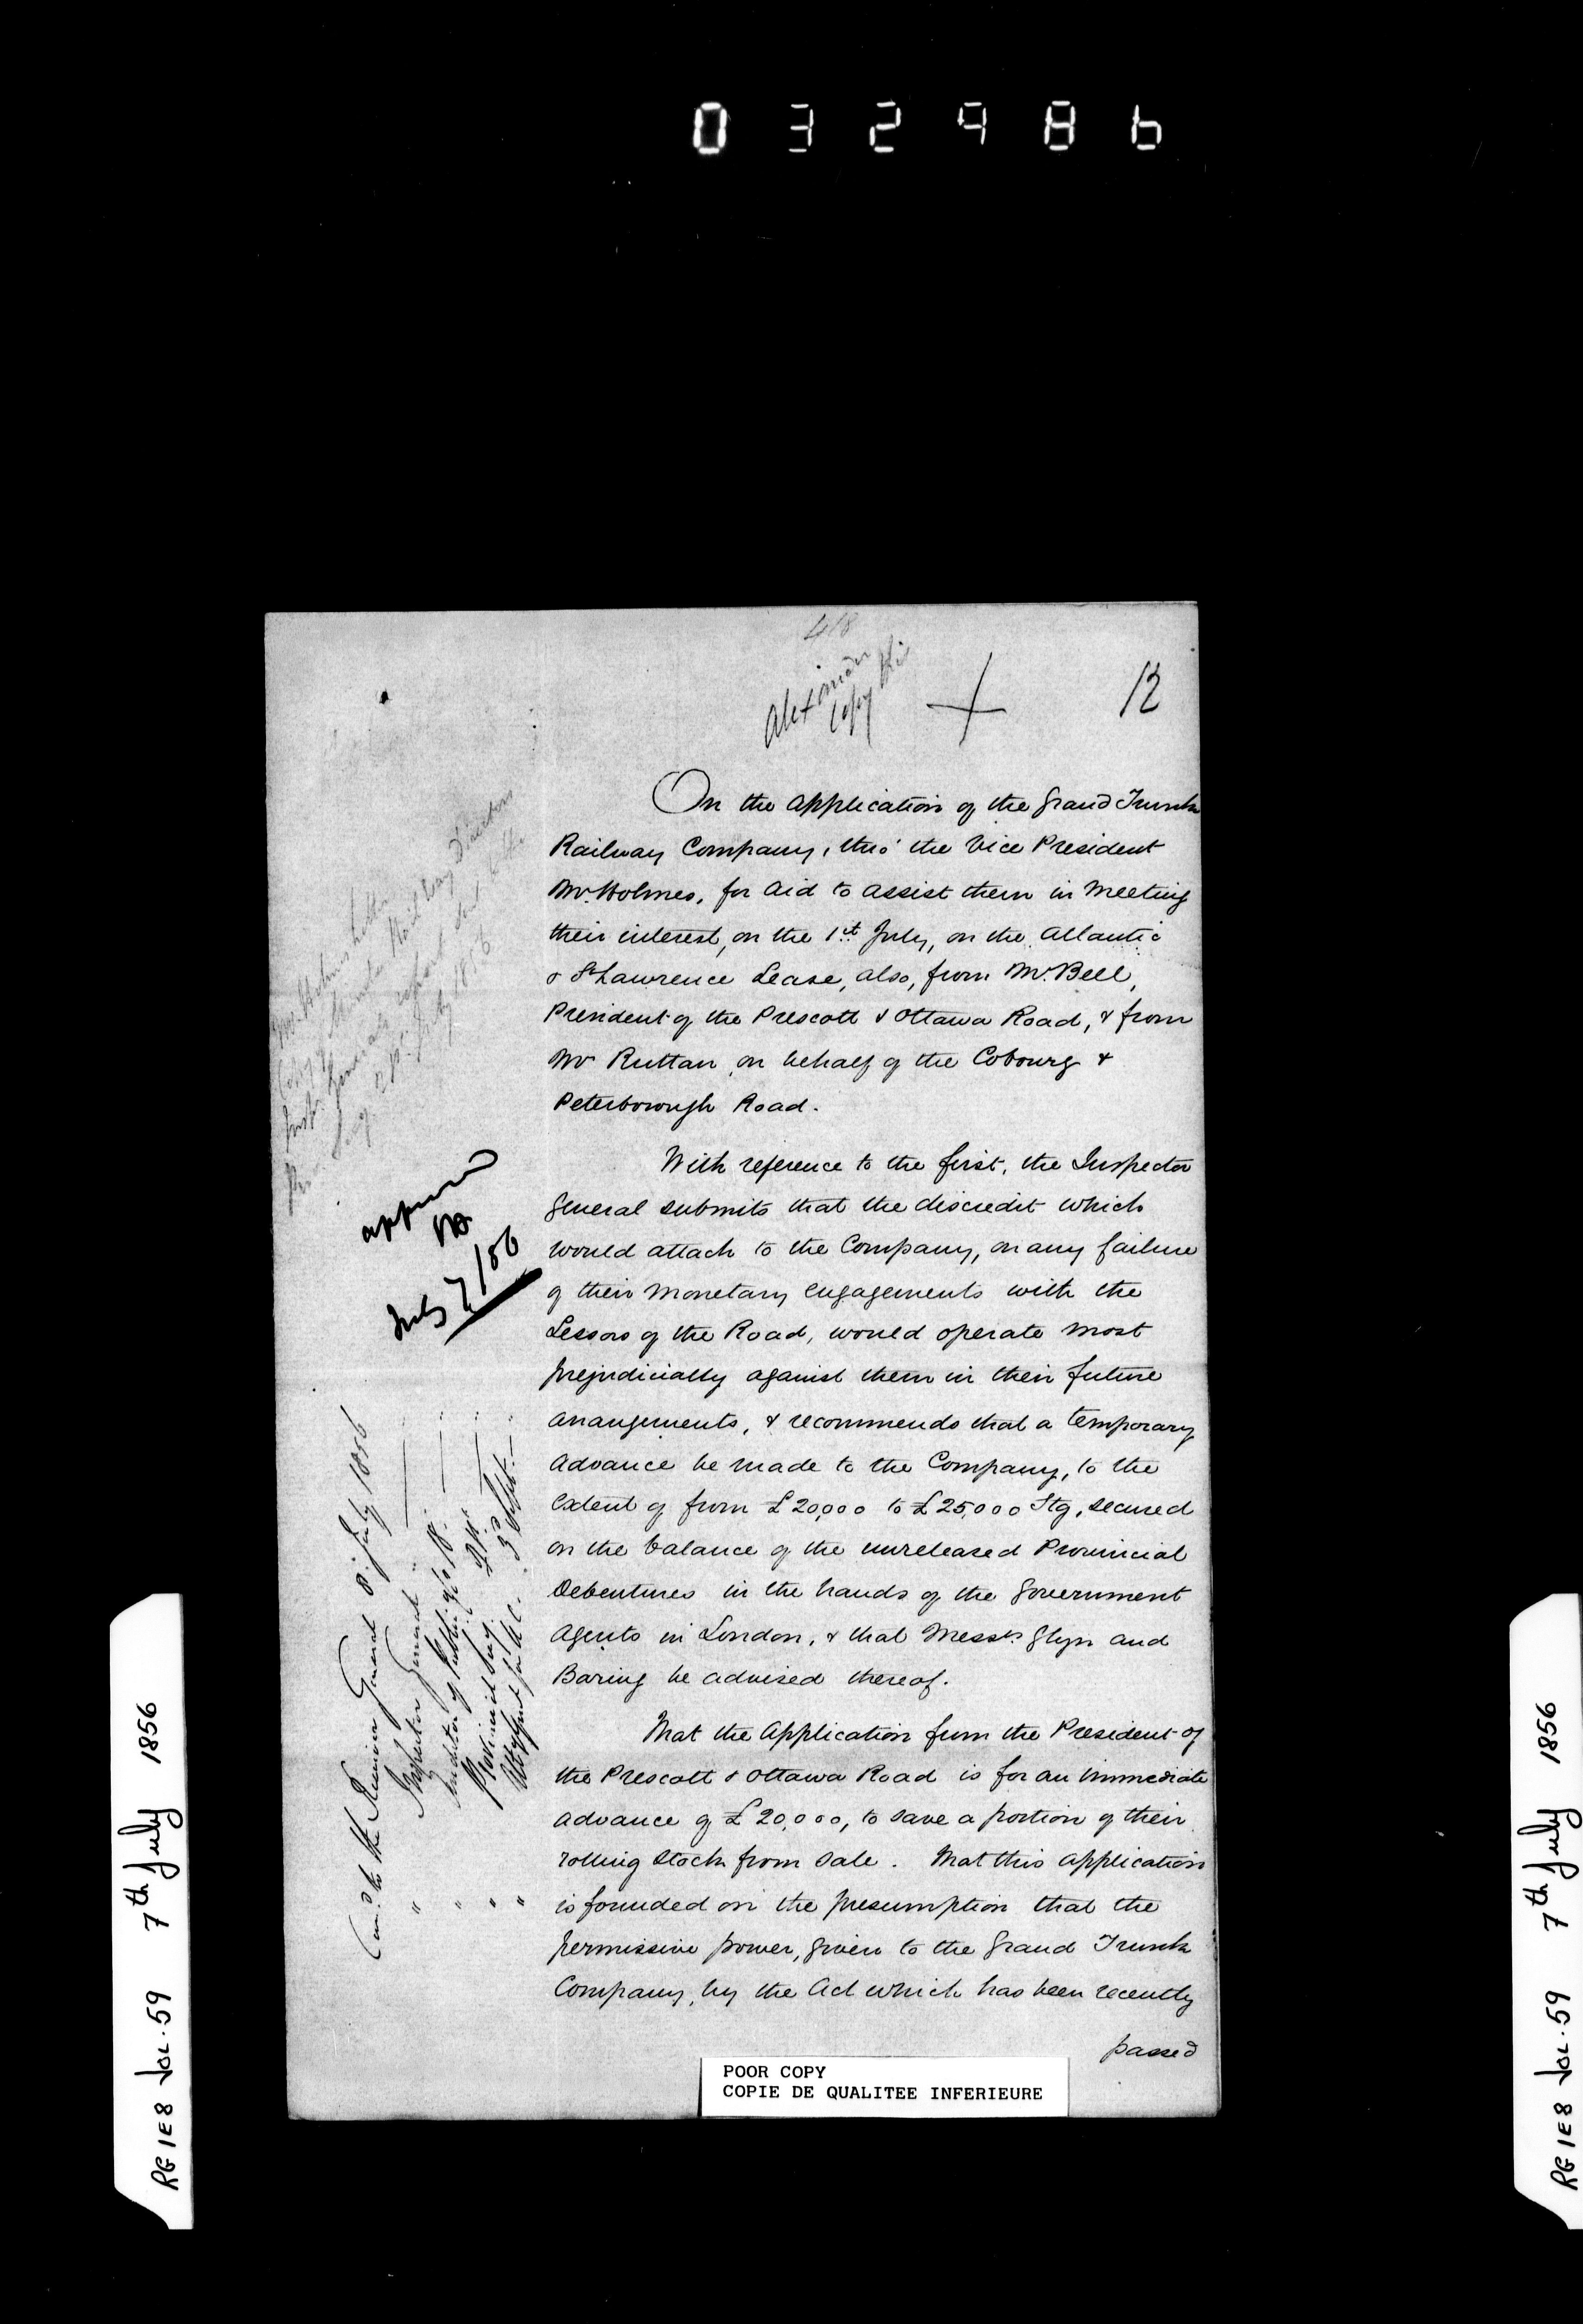 032986
418
12
On the Application of the Grand Trunk
Railway Company, thro' the Vice President
Mr. Holmes, for Aid to assist them in Meeting
their interest, on the 1st July, on the Atlantic
& St Lawrence Lease, also, from Mr. Bell,
President of the Prescott & Ottawa Road, & from
Mr Ruttan, on behalf of the Cobourg &
Peterborough Road.
With reference to the first, the Inspector
General submits that the discredit which
would attach to the Company, on any failure
of their Monetary engagements with the
Lessors of the Road, would operate most
prejudicially against them in their future
arrangements, & recommends that a temporary
Advance be made to the Company, to the
extent of from £20,000 to £25,000 Stg, secured
on the balance of the unreleased Provincial
Debentures in the hands of the Government
Agents in London, & that Messrs. Glyn and
Baring be advised thereof.
That the Application from the President of
the Prescott & Ottawa Road is for an immediate
advance of £20,000, to save a portion of their
rolling Stock from sale. That this Application
is founded on the presumption that the
permissive power, given to the Grand Trunk
Company, by the Act which has been recently
passed
approved
July 7/56
to the Receiver General 8. July 1856
" Inspector General "
" Auditor of Public
" Provincial Secy.
"
POOR COPY
COPIE DE QUALITEE INFERIEURE
RG1E8 Vol. 59 7th July 1856
RG1E8 Vol. 59 7th July 1856